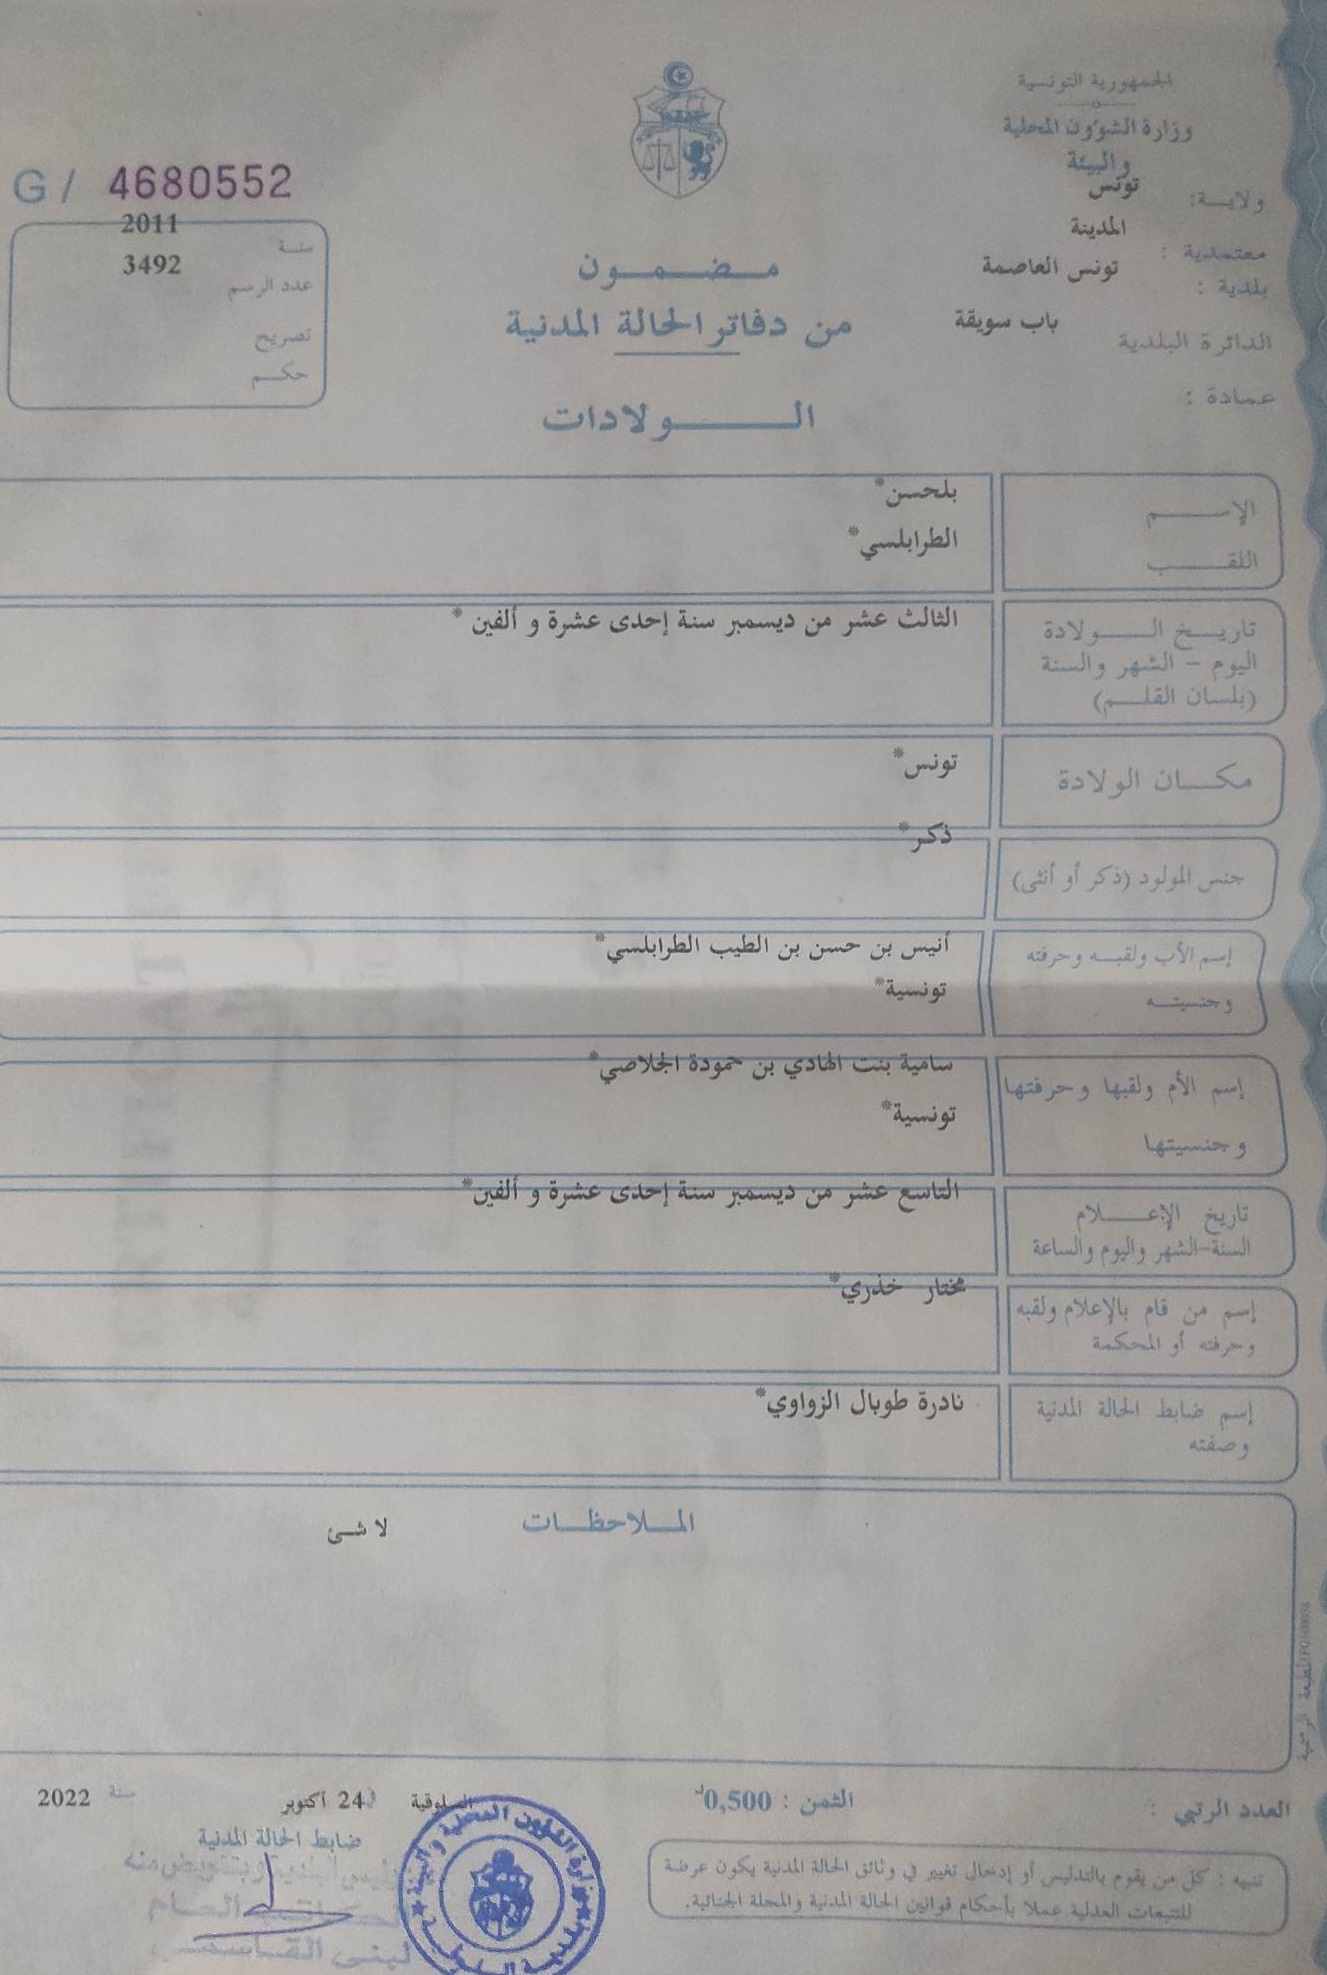 الجمهورية التونسية
وزارة الشؤون المحلية
والبيئة
ولايـــة: تونس
معتمدية : المدينة
بلدية : تونس العاصمة
الدائرة البلدية باب سويقة
عمادة :
G / 4680552
سنة 2011
عدد الرسم 3492
تصريح
حكم
مضمون
من دفاتر الحالة المدنية
الولادات
الإسم بلحسن*
اللقب الطرابلسي*
تاريخ الولادة الثالث عشر من ديسمبر سنة إحدى عشرة و ألفين *
اليوم – الشهر والسنة
(بلسان القلم)
مكان الولادة تونس*
جنس المولود (ذكر أو أنثى) ذكر*
إسم الأب ولقبه وحرفته أنيس بن حسن بن الطيب الطرابلسي*
وجنسيته تونسية*
إسم الأم ولقبها وحرفتها سامية بنت الهادي بن حمودة الجلاصي*
وجنسيتها تونسية*
تاريخ الإعلام التاسع عشر من ديسمبر سنة إحدى عشرة و ألفين*
السنة-الشهر واليوم والساعة
إسم من قام بالإعلام ولقبه مختار خذري*
وحرفته أو المحكمة
إسم ضابط الحالة المدنية نادرة طوبال الزواوي*
وصفته
الملاحظات لا شئ
العدد الرتبي :
الثمن : 0,500د
السلوقية في 24 أكتوبر سنة 2022
ضابط الحالة المدنية
تنبيه : كل من يقوم بالتدليس أو إدخال تغيير في وثائق الحالة المدنية يكون عرضة
للتتبعات العدلية عملا بأحكام قوانين الحالة المدنية والمجلة الجنائية.
وزارة الشؤون المحلية والبيئة